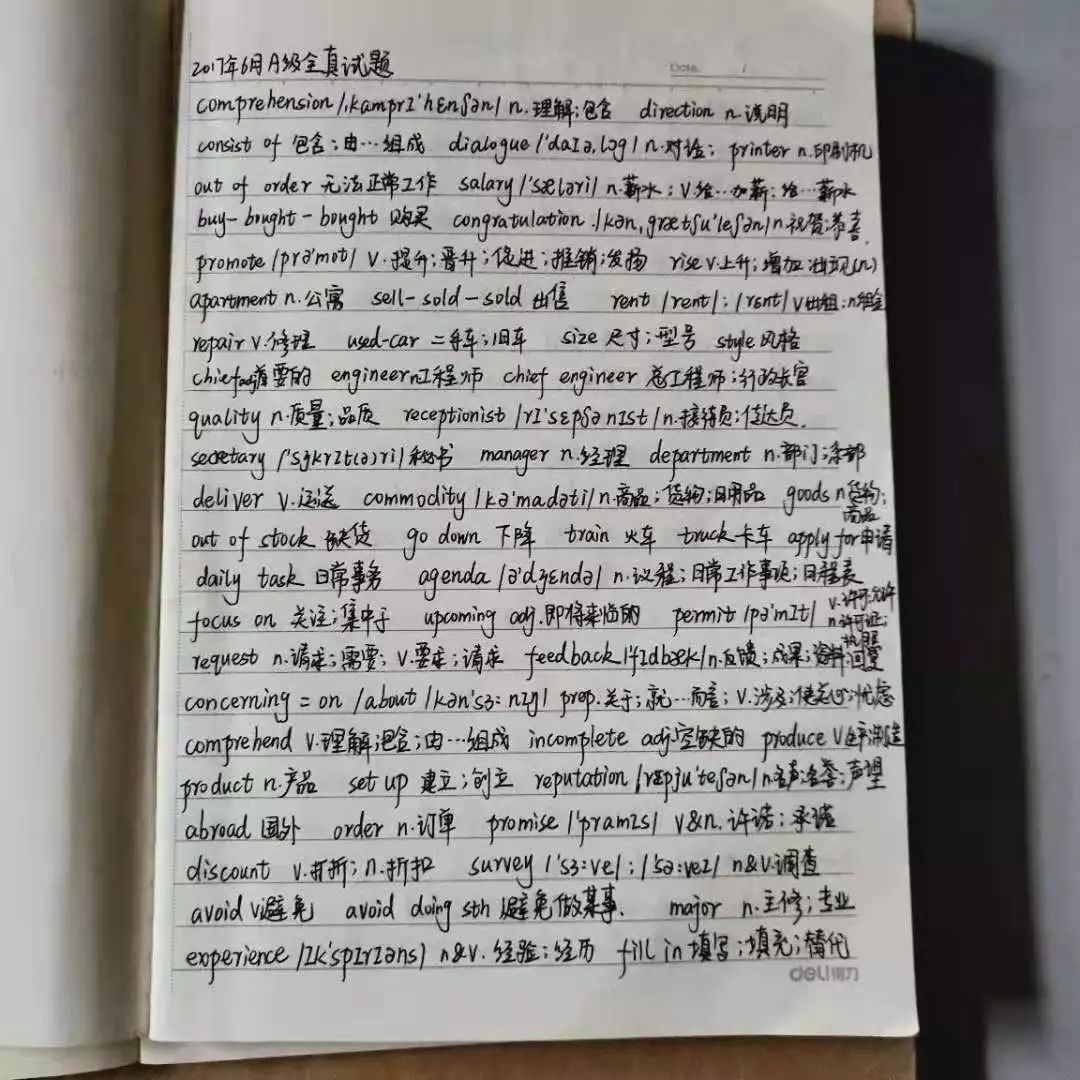 2017年6月A级全真试题
Date /
comprehension /,kamprɪ'hɛnʃən/ n.理解;包含 direction n.说明
consist of 包含;由…组成 dialogue /'daɪə,lɔg/ n.对话; printer n.印刷机
out of order 无法正常工作 salary /'sæləri/ n.薪水; v给…加薪;给…薪水
buy-bought-bought 购买 congratulation /kən,grætʃu'leʃən/ n.祝贺;恭喜
promote /prə'mot/ v.提升;晋升;促进;推销;发扬 rise v.上升;增加 出现(n)
apartment n.公寓 sell-sold-sold 出售 rent /rent/; /rɛnt/ v出租;n租金
repair v.修理 used-car 二手车;旧车 size 尺寸;型号 style 风格
chief adj首要的 engineer n工程师 chief engineer 总工程师;行政长官
quality n.质量;品质 receptionist /rɪ'sɛpʃənɪst/ n.接待员;传达员.
secretary /'sɝkrɪt(ə)ri/ 秘书 manager n.经理 department n.部门;系部
deliver v.运送 commodity /kə'madəti/ n.商品;货物;日用品 goods n货物;商品
out of stock 缺货 go down 下降 train 火车 truck 卡车 apply for申请
daily task 日常事务 agenda /ə'dʒɛndə/ n.议程;日常工作事项;日程表
focus on 关注;集中于 upcoming adj.即将来临的 permit /pə'mɪt/ v.许可;允许 n.许可证;执照
request n.请求;需要; v.要求;请求 feedback /'fidbæk/ n.反馈;成果;资料;回复
concerning = on /about /kən'sɜ:nɪŋ/ prep.关于;就…而言; v.涉及;使关心;忧虑
comprehend v.理解;包含;由…组成 incomplete adj.空缺的 produce v生产;制造
product n.产品 set up 建立;创立 reputation /,rɛpju'teʃən/ n.名声;名誉;声望
abroad 国外 order n.订单 promise /'pramɪs/ v&n.许诺;承诺
discount v.打折; n.折扣 survey /'sɜ:ve/; /'sə:veɪ/ n&v.调查
avoid v避免 avoid doing sth 避免做某事. major n.主修;专业
experience /ɪk'spɪrɪəns/ n&v.经验;经历 fill in 填写;填充;替代
deli得力